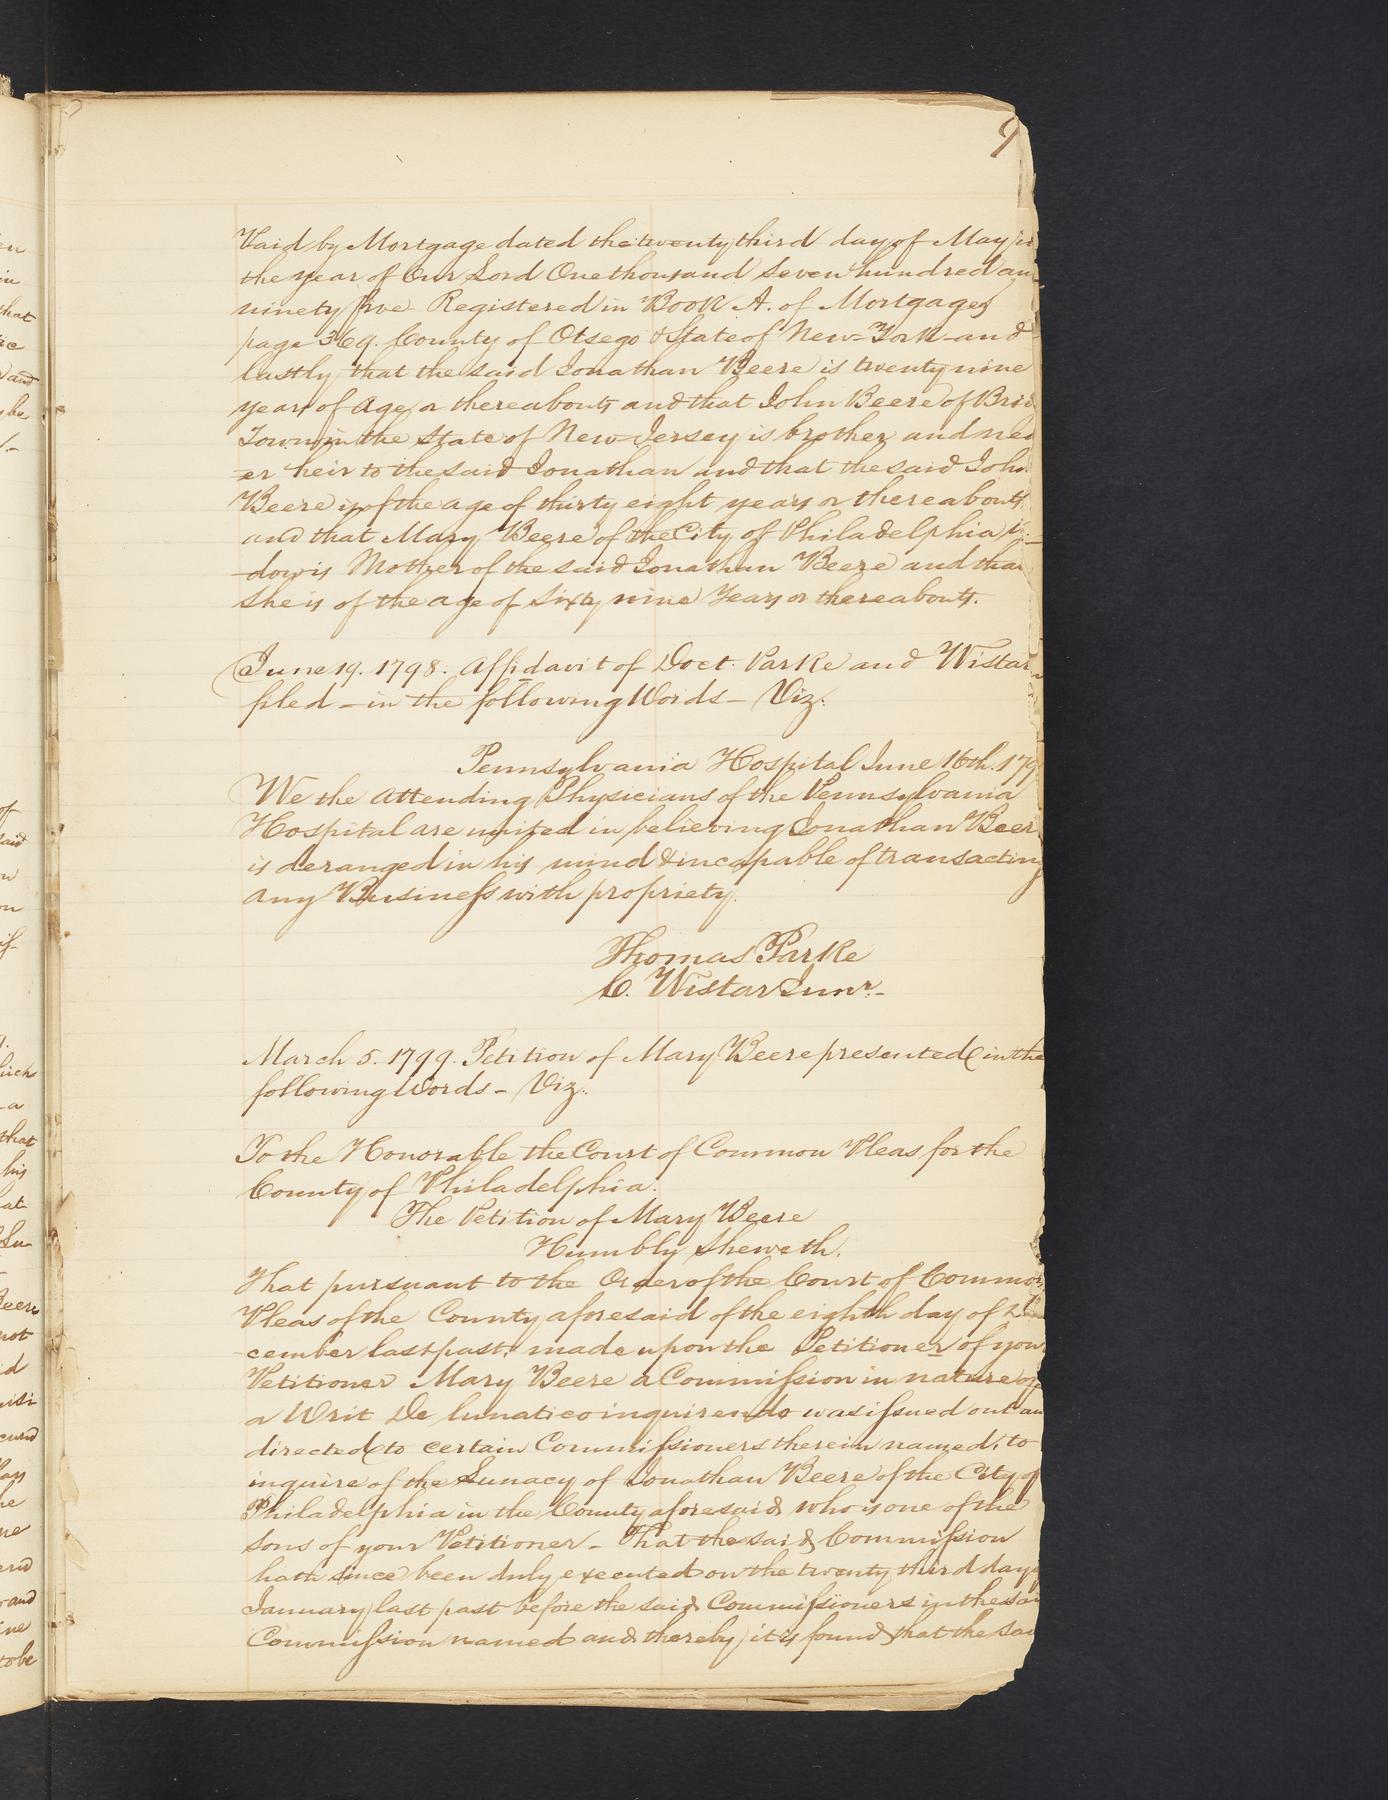 9
Vaid by Mortgage dated the twenty third day of May in
the year of Our Lord One thousand seven hundred an
ninety five Registered in Book A. of Mortgages
page 369. County of Otsego & State of New-York and
lastly that the said Jonathan Beere is twenty nine
years of age, or thereabouts and that John Beere of Brid
Town in the State of New-Jersey is brother and near
er heir to the said Jonathan and that the said John
Beere is of the age of thirty eight years or thereabouts
and that Mary Beere of the City of Philadelphia
dow is Mother of the said Jonathan Beere and that
she is of the age of Sixty nine Years or thereabouts.
June 19. 1798. Affidavit of Doct. Parke and Wistar
filed – in the following Words – Viz.
Pennsylvania Hospital June 16th. 179
We the Attending Physicians of the Pennsylvania
Hospital are united in believing Jonathan Beer
is deranged in his mind & incapable of transacting
any Business with propriety.
Thomas Parke
C. Wistar Junr.-
March 5. 1799. Petition of Mary Beere presented in the
following Words – Viz.
To the Honorable the Court of Common Pleas for the
County of Philadelphia.
The Petition of Mary Beere
Humbly Sheweth.
That pursuant to the Order of the Court of Common
Pleas of the County aforesaid of the eighth day of
cember last past: made upon the Petitioner of your
Petitioner Mary Beere a Commission in nature of
a Writ De lunatico inquirendo was issued out an
directed to certain Commissioners therein named, to
inquire of the Lunacy of Jonathan Beere of the City of
Philadelphia in the County aforesaid who is one of the
sons of your Petitioner – That the said Commission
hath since been duly executed on the twenty third day
January last past before the said Commissioners in the sa
Commission named and thereby it is found that the sai